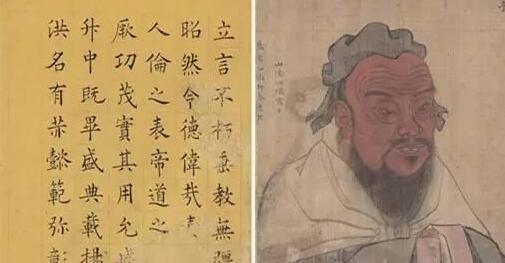 立言不朽垂教無疆
昭然令德偉哉
人倫之表帝道之
厥功茂實其用允
升中既畢盛典載揚
洪名有赫懿範彌彰